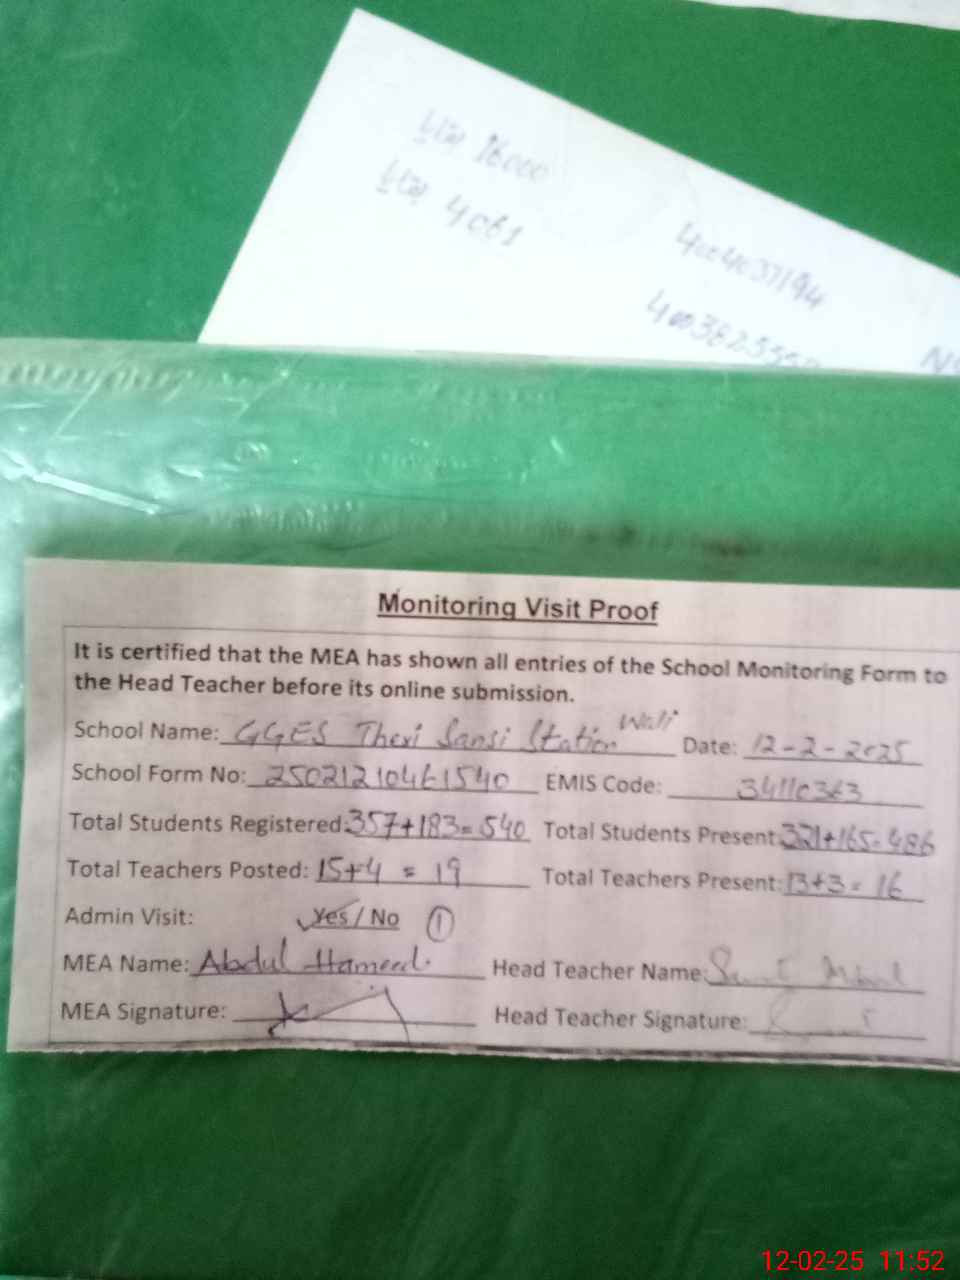 16000
4061
4004037194
Monitoring Visit Proof
It is certified that the MEA has shown all entries of the School Monitoring Form to
the Head Teacher before its online submission.
School Name: GGES Theri Sansi Station Wali Date: 12-2-2025
School Form No: 25021210461540 EMIS Code: 34110363
Total Students Registered: 357+183=540 Total Students Present: 321+165=486
Total Teachers Posted: 15+4 = 19 Total Teachers Present: 13+3 = 16
Admin Visit: Yes / No 1
MEA Name: Abdul Hameed. Head Teacher Name:
MEA Signature: Head Teacher Signature:
12-02-25 11:52